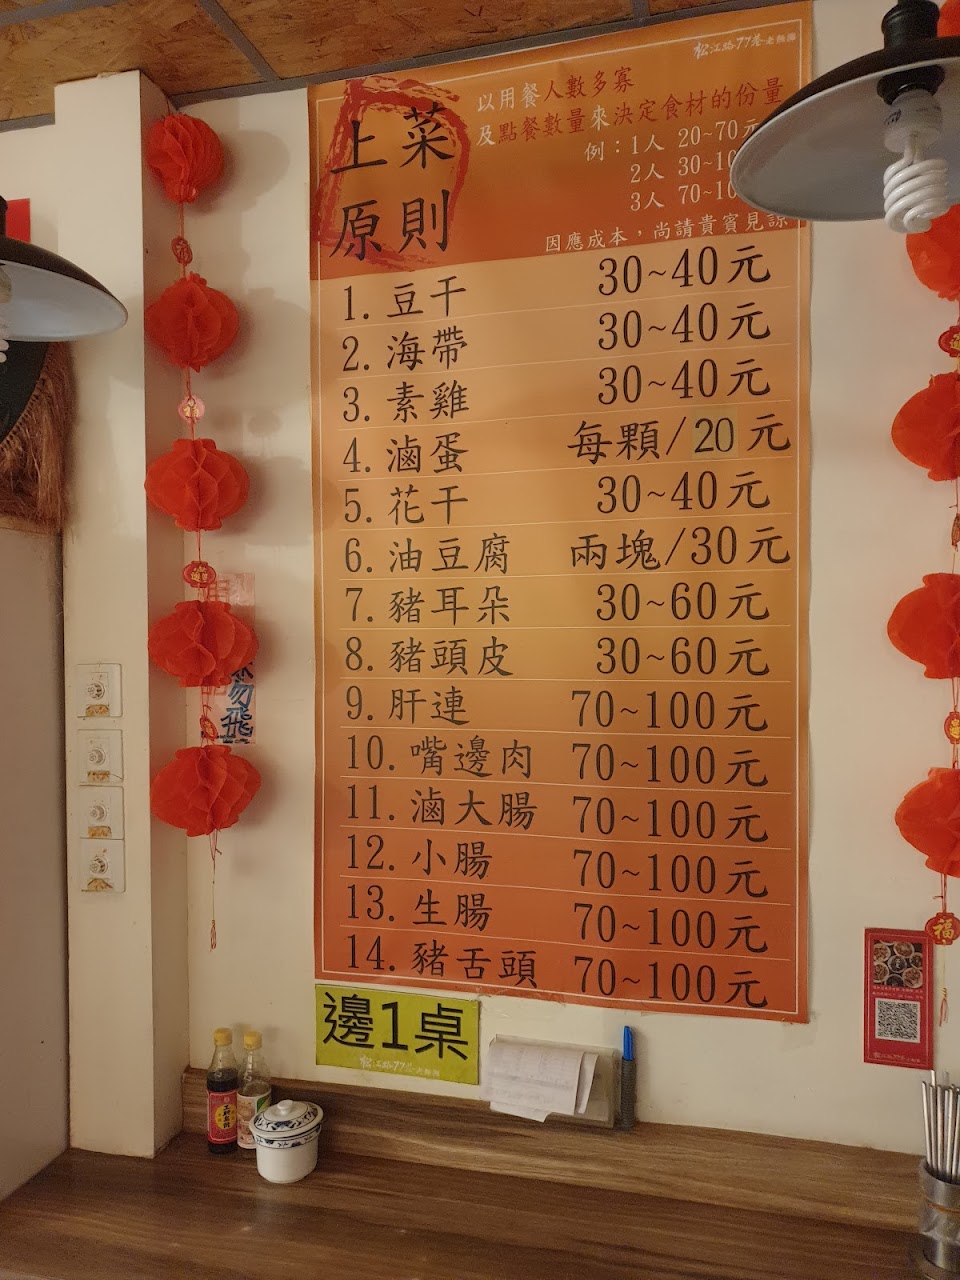 松江路77巷老麵攤
上菜
原則
以用餐人數多寡
及點餐數量來決定食材的份量
例：1人 20~70元
2人 30~10
3人 70~10
因應成本，尚請貴賓見諒
1. 豆干 30~40元
2. 海帶 30~40元
3. 素雞 30~40元
4. 滷蛋 每顆/20元
5. 花干 30~40元
6. 油豆腐 兩塊/30元
7. 豬耳朵 30~60元
8. 豬頭皮 30~60元
9. 肝連 70~100元
10. 嘴邊肉 70~100元
11. 滷大腸 70~100元
12. 小腸 70~100元
13. 生腸 70~100元
14. 豬舌頭 70~100元
邊1桌
松江路77巷老麵攤
福